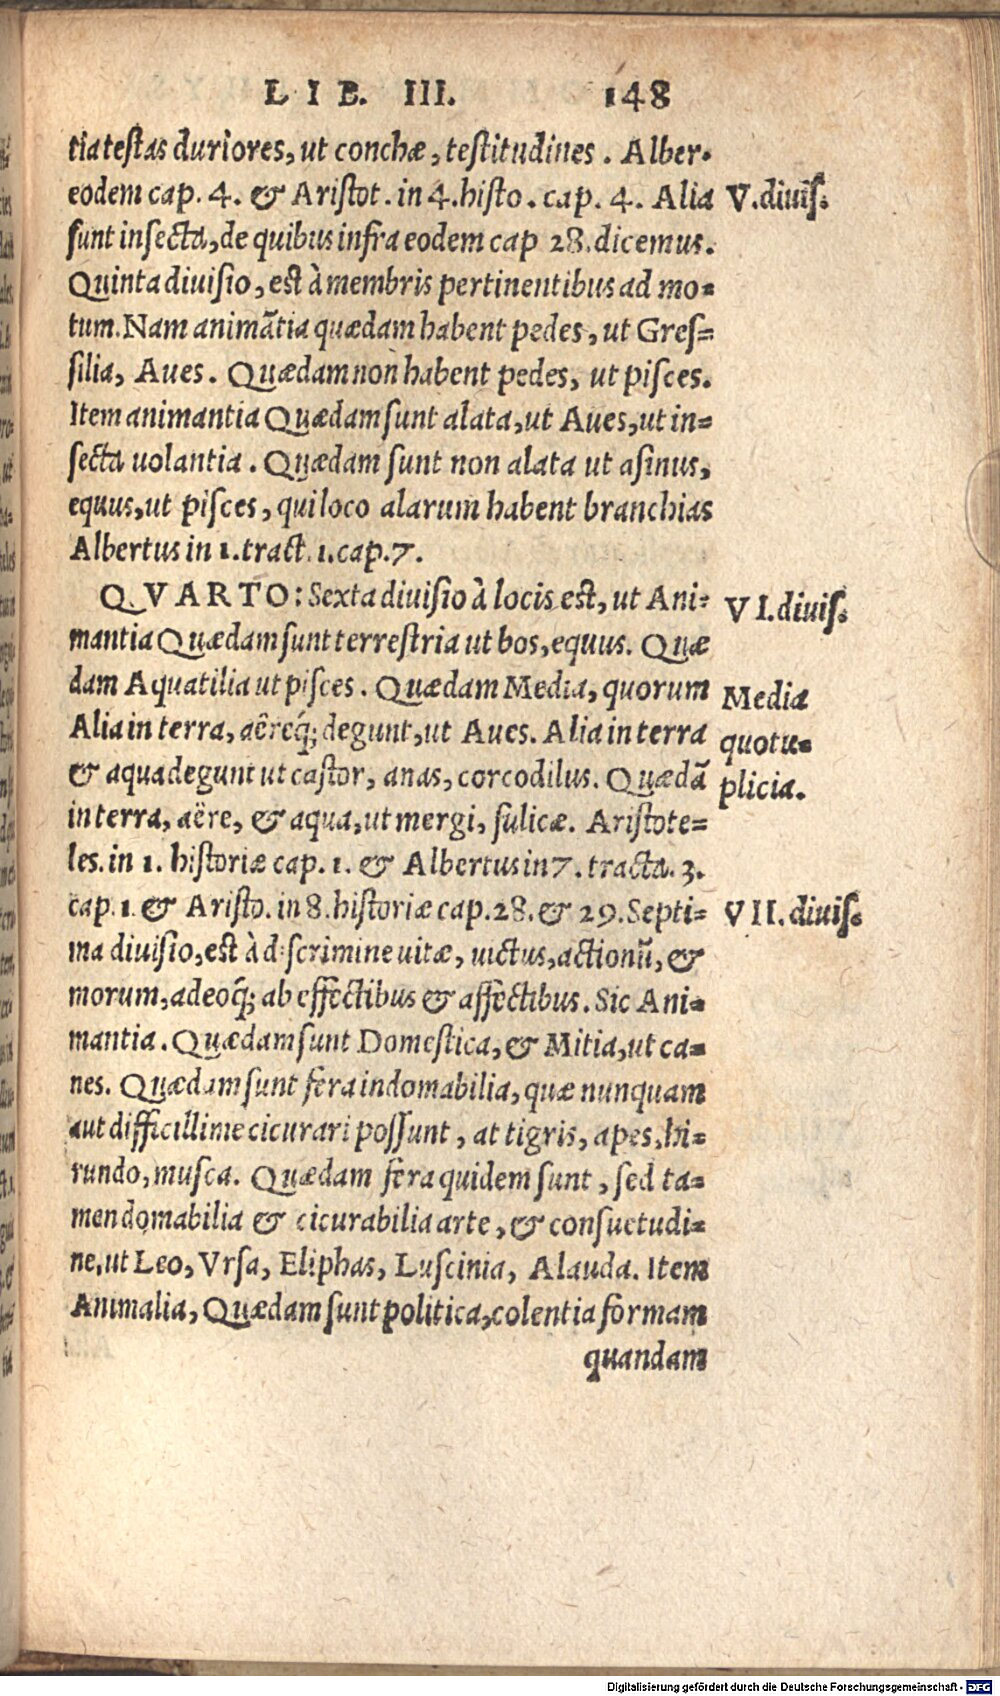 LIB. III. 148
tia testas duriores, ut conchæ, testitudines. Alber.
eodem cap. 4. & Aristot. in 4. histo. cap. 4. Alia
V. diuis.
sunt insecta, de quibus infra eodem cap 28. dicemus.
Quinta diuisio, est à membris pertinentibus ad mo=
tum. Nam animãtia quædam habent pedes, ut Gres=
silia, Aues. Quædam non habent pedes, ut pisces.
Item animantia Quædam sunt alata, ut Aues, ut in=
secta uolantia. Quædam sunt non alata ut asinus,
equus, ut pisces, qui loco alarum habent branchias
Albertus in 1. tract. 1. cap. 7.
QVARTO: Sexta diuisio à locis est, ut Ani=
VI. diuis.
mantia Quædam sunt terrestria ut bos, equus. Quæ
dam Aquatilia ut pisces. Quædam Media, quorum
Alia in terra, aëreq́; degunt, ut Aues. Alia in terra
& aqua degunt ut castor, anas, corcodilus. Quædã
Media
quotu=
plicia.
in terra, aëre, & aqua, ut mergi, fulicæ. Aristote=
les. in 1. historiæ cap. 1. & Albertus in 7. tracta. 3.
cap. 1. & Aristo. in 8. historiæ cap. 28. & 29. Septi=
VII. diuis.
ma diuisio, est à discrimine uitæ, uictus, actionũ, &
morum, adeoq́; ab effectibus & affectibus. Sic Ani=
mantia. Quædam sunt Domestica, & Mitia, ut ca=
nes. Quædam sunt fera indomabilia, quæ nunquam
aut difficillime cicurari possunt, at tigris, apes, hi=
rundo, musca. Quædam fera quidem sunt, sed ta=
men domabilia & cicurabilia arte, & consuetudi=
ne, ut Leo, Vrsa, Eliphas, Luscinia, Alauda. Item
Animalia, Quædam sunt politica, colentia formam
quandam
Digitalisierung gefördert durch die Deutsche Forschungsgemeinschaft - DFG